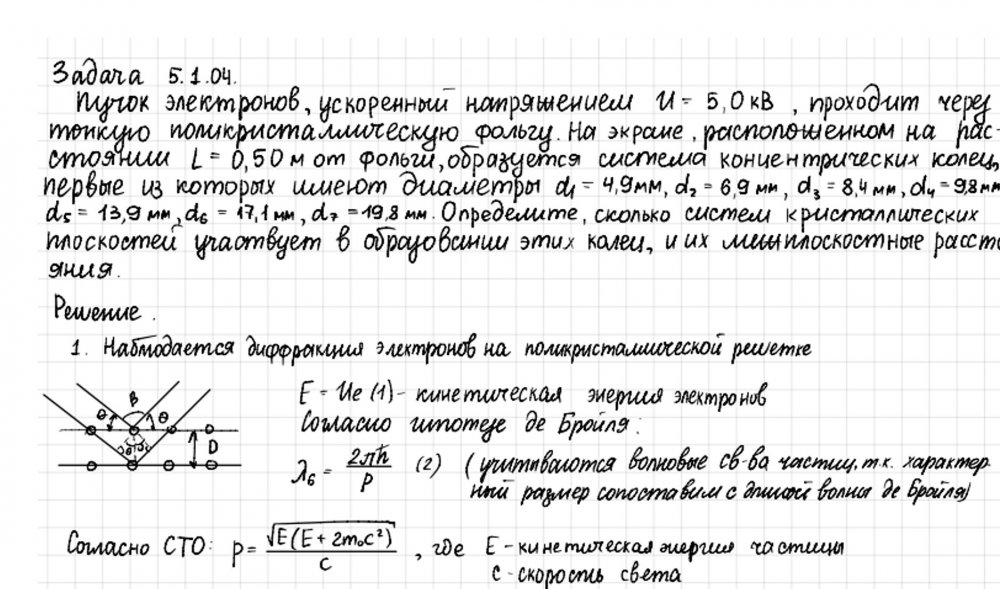 Задача 5.1.04.
Пучок электронов, ускоренный напряжением U = 5,0 кВ, проходит через
тонкую поликристаллическую фольгу. На экране, расположенном на рас-
стоянии L = 0,50 м от фольги, образуется система концентрических колец,
первые из которых имеют диаметры d1 = 4,9мм, d2 = 6,9 мм, d3 = 8,4 мм, d4 = 9,8мм
d5 = 13,9 мм, d6 = 17,1 мм, d7 = 19,8 мм. Определите, сколько систем кристаллических
плоскостей участвует в образовании этих колец, и их межплоскостные рассто
яния.
Решение.
1. Наблюдается диффракция электронов на поликристаллической решетке
E = Ue (1) - кинетическая энергия электронов
Согласно гипотезе де Бройля:
β
θ θ
D
λБ = 2πħ/p (2) (учитываются волновые св-ва частиц, т.к. характер
ный размер сопоставим с длиной волны де Бройля)
Согласно СТО: p = √E(E + 2m₀c²)/c, где E - кинетическая энергия частицы
c - скорость света